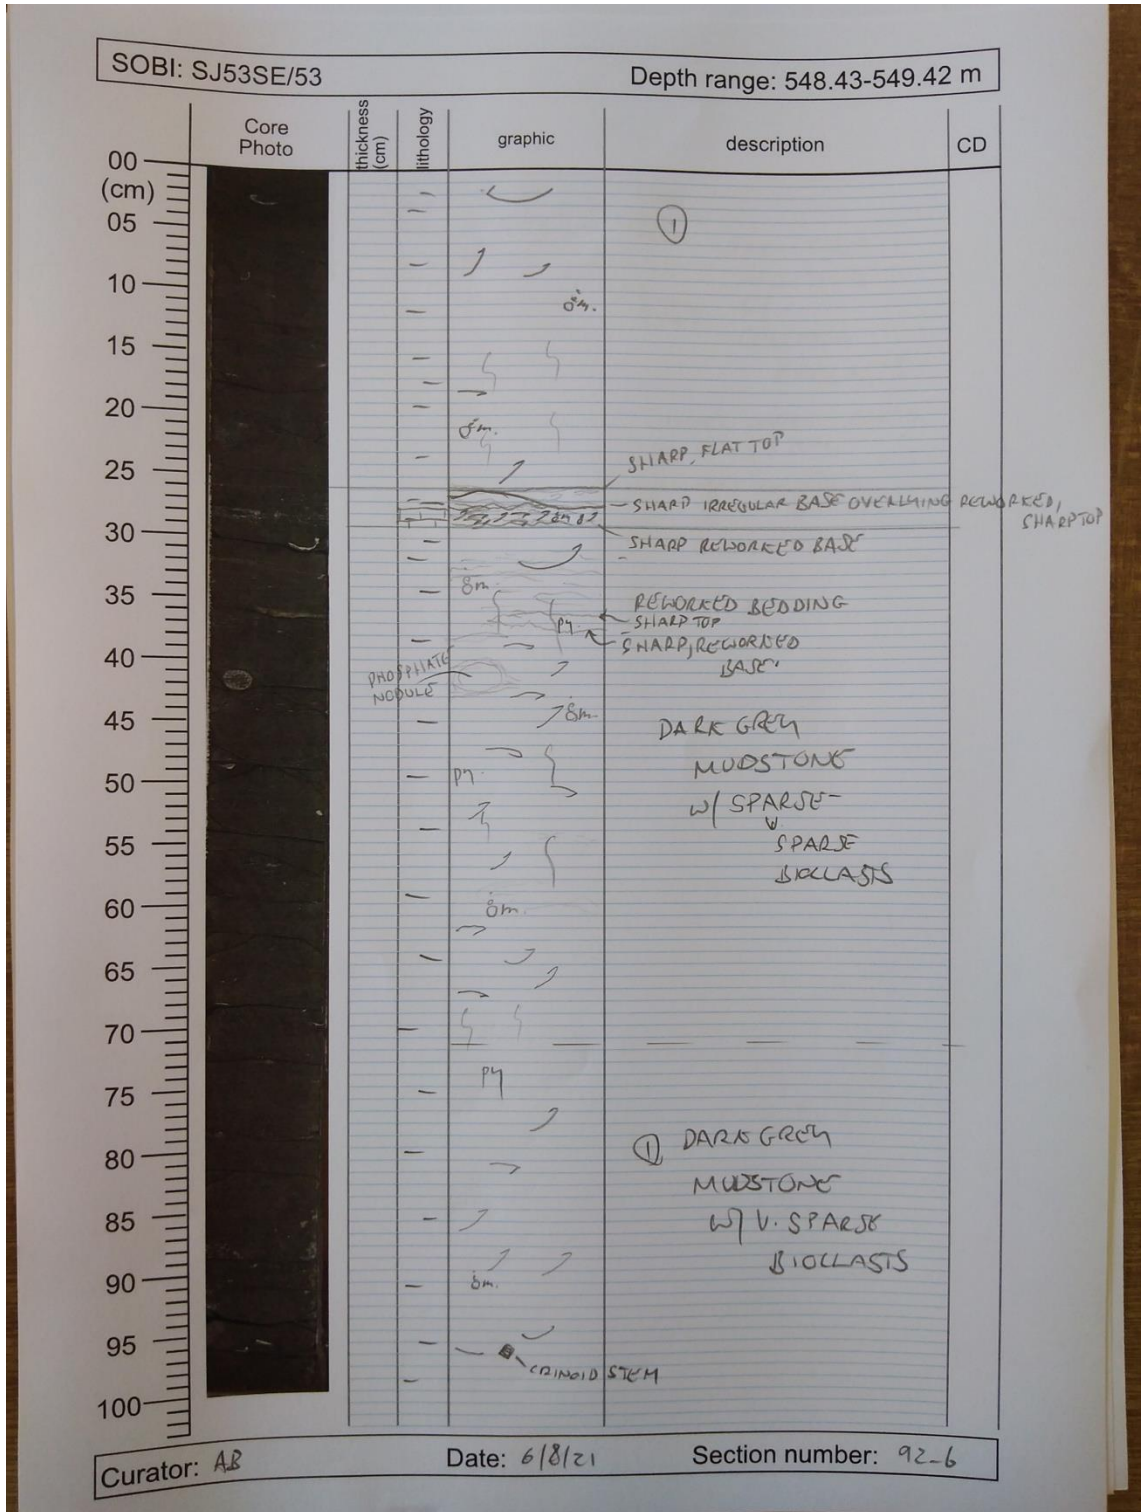 SOBI: SJ53SE/53
Depth range: 548.43-549.42 m
Core
Photo
thickness
(cm)
lithology
graphic
description
CD
00
(cm)
05
10
15
20
25
30
35
40
45
50
55
60
65
70
75
80
85
90
95
100
1
SHARP, FLAT TOP
SHARP IRREGULAR BASE OVERLYING REWORKED,
SHARP TOP
SHARP REWORKED BASE
REWORKED BEDDING
SHARP TOP
py
SHARP, REWORKED
BASE
PHOSPHATE
NODULE
DARK GREY
MUDSTONE
W/ SPARSE-
V
SPARSE
BIOCLASTS
py
py
1 DARK GREY
MUDSTONE
W/ V. SPARSE
BIOCLASTS
CRINOID STEM
Curator: AB
Date: 6/8/21
Section number: 92_6